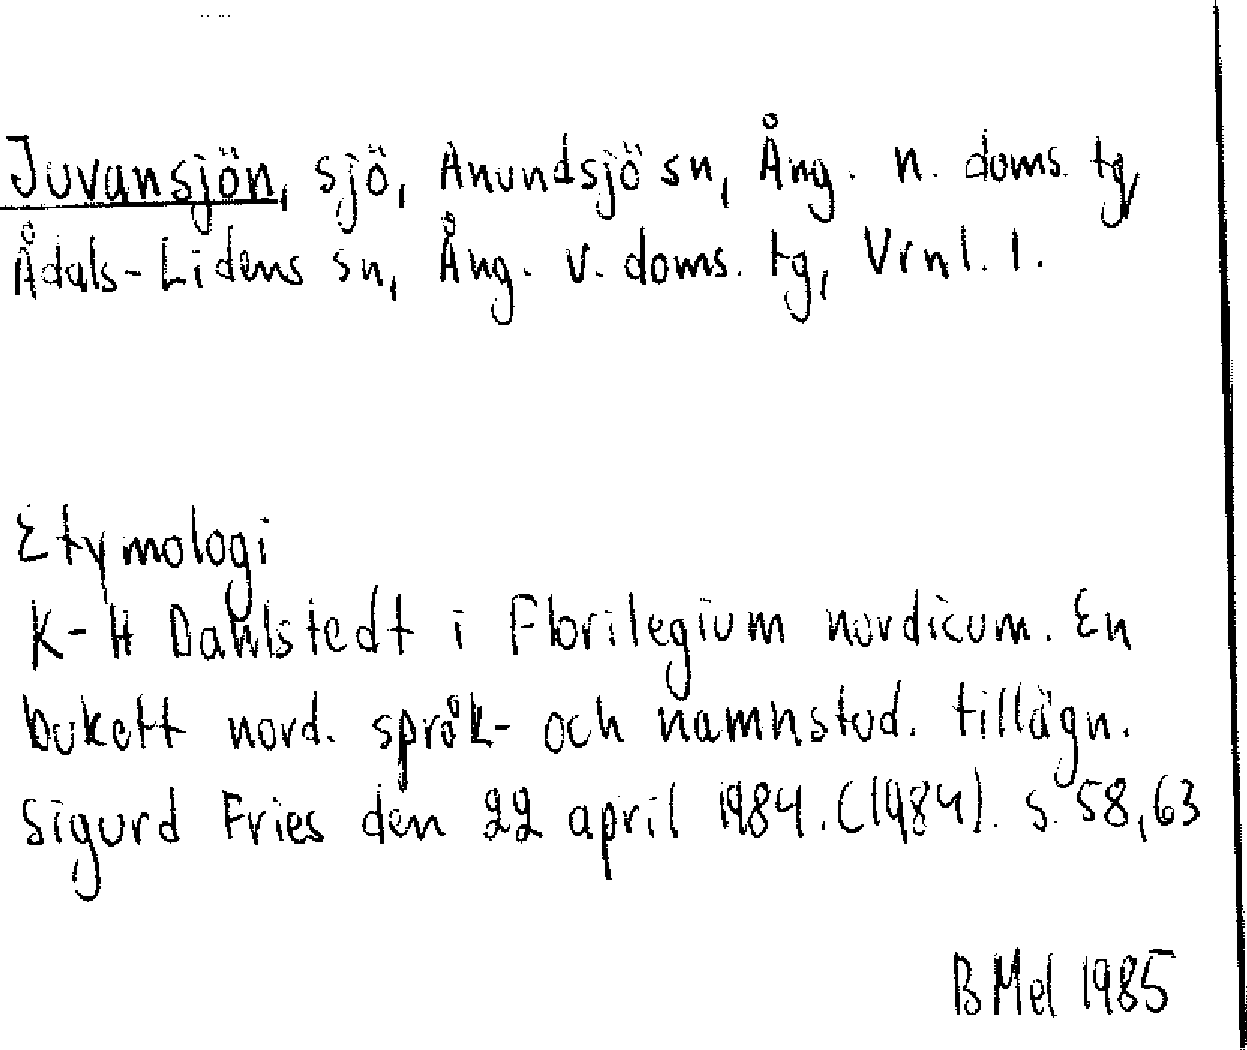 Juvansjön, sjö, Anundsjö sn, Ång. n. doms. tg,
Ådals-Lidens sn, Ång. v. doms. tg, Vrnl. l.
Etymologi
K-H Dahlstedt i Florilegium nordicum. En
bukett nord. språk- och namnstud. tillägn.
Sigurd Fries den 22 april 1984. (1984). s. 58, 63
B Mel 1985